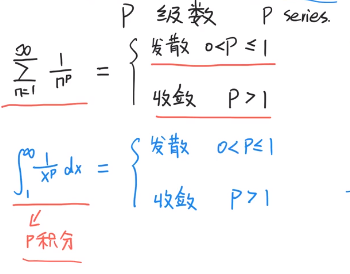 P 级数 P series.
∞∑n=1 1/n^P = { 发散 0<P≤1
收敛 P>1
∫1^∞ 1/x^P dx = { 发散 0<P≤1
收敛 P>1
P积分